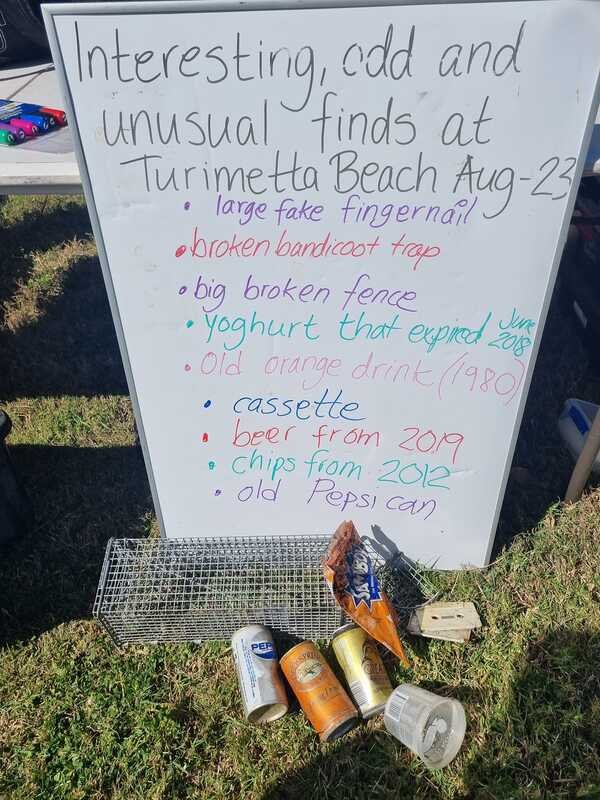 Interesting, odd and
unusual finds at
Turimetta Beach Aug-23
• large fake fingernail
• broken bandicoot trap
• big broken fence
• yoghurt that expired June 2018
• Old orange drink (1980)
• cassette
• beer from 2019
• chips from 2012
• old Pepsi can